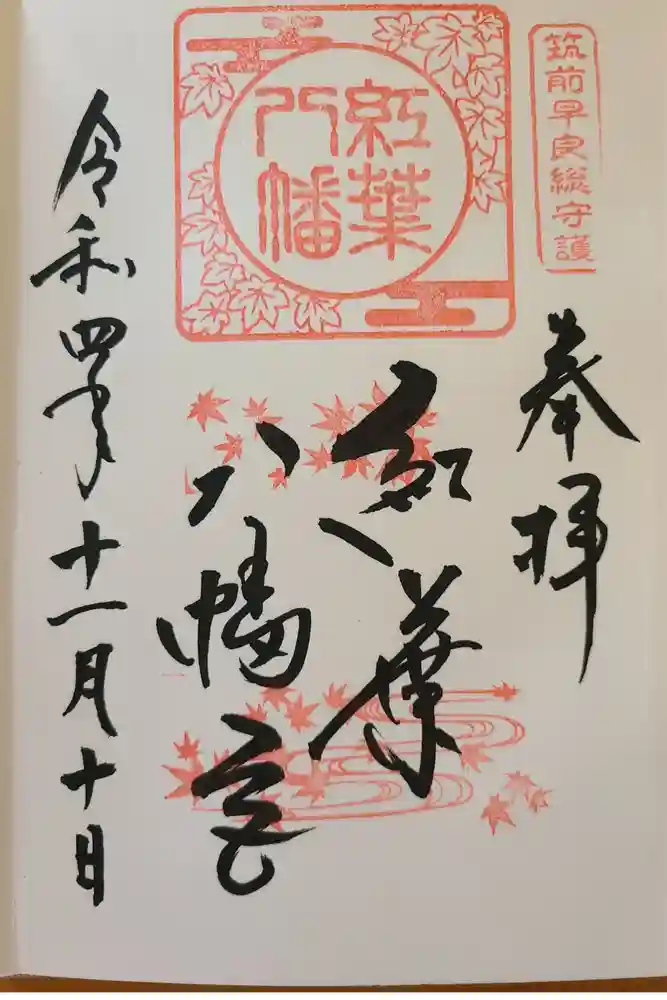 筑前早良総守護
奉拝
紅葉
八幡
紅葉
八幡宮
令和四年十一月十日